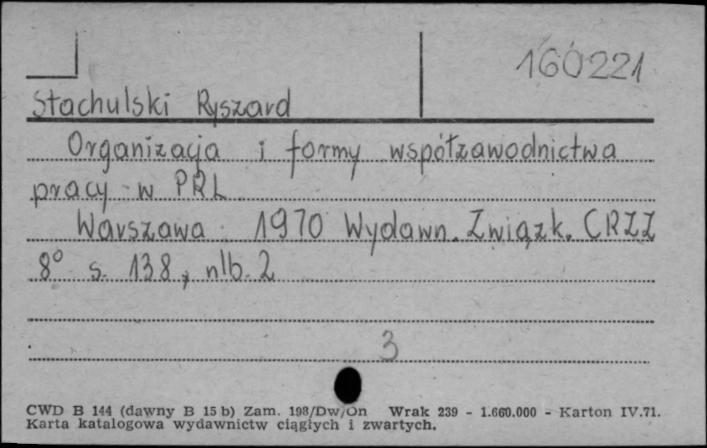 160221
Stachulski Ryszard
Organizacja i formy współzawodnictwa
pracy w PRL
Warszawa 1970 Wydawn. Związk. CRZZ
8° s. 138, nlb. 2
3
CWD B 144 (dawny B 15 b) Zam. 198/Dw/On Wrak 239 - 1.660.000 - Karton IV.71.
Karta katalogowa wydawnictw ciągłych i zwartych.